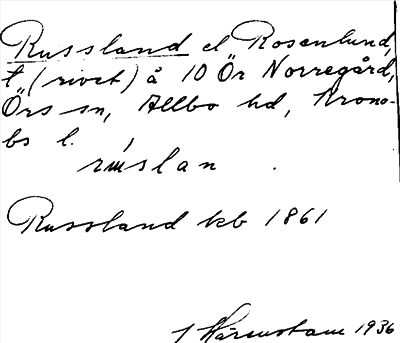 Russland el Rosenlund,
t (rivet) å 10 Ör Norregård,
Örs sn, Allbo hd, Krono-
bs l.
rüslan
Russland kb 1861
1936